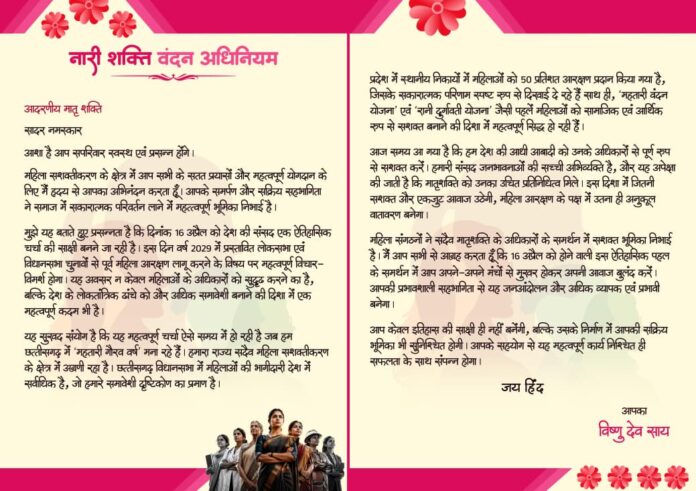 नारी शक्ति वंदन अधिनियम
आदरणीय मातृ शक्ति
सादर नमस्कार
आशा है आप सपरिवार स्वस्थ एवं प्रसन्न होंगे।
महिला सशक्तीकरण के क्षेत्र में आप सभी के सतत प्रयासों और महत्वपूर्ण योगदान के
लिए मैं हृदय से आपका अभिनंदन करता हूँ। आपके समर्पण और सक्रिय सहभागिता
ने समाज में सकारात्मक परिवर्तन लाने में महत्त्वपूर्ण भूमिका निभाई है।
मुझे यह बताते हुए प्रसन्नता है कि दिनांक 16 अप्रैल को देश की संसद एक ऐतिहासिक
चर्चा की साक्षी बनने जा रही है। इस दिन वर्ष 2029 में प्रस्तावित लोकसभा एवं
विधानसभा चुनावों से पूर्व महिला आरक्षण लागू करने के विषय पर महत्वपूर्ण विचार-
विमर्श होगा। यह अवसर न केवल महिलाओं के अधिकारों को सुदृढ़ करने का है,
बल्कि देश के लोकतांत्रिक ढांचे को और अधिक समावेशी बनाने की दिशा में एक
महत्वपूर्ण कदम भी है।
यह सुखद संयोग है कि यह महत्वपूर्ण चर्चा ऐसे समय में हो रही है जब हम
छत्तीसगढ़ में 'महतारी गौरव वर्ष' मना रहे हैं। हमारा राज्य सदैव महिला सशक्तीकरण
के क्षेत्र में अग्रणी रहा है। छत्तीसगढ़ विधानसभा में महिलाओं की भागीदारी देश में
सर्वाधिक है, जो हमारे समावेशी दृष्टिकोण का प्रमाण है।
प्रदेश में स्थानीय निकायों में महिलाओं को 50 प्रतिशत आरक्षण प्रदान किया गया है,
जिसके सकारात्मक परिणाम स्पष्ट रूप से दिखाई दे रहे हैं साथ ही, 'महतारी वंदन
योजना' एवं 'रानी दुर्गावती योजना' जैसी पहलें महिलाओं को सामाजिक एवं आर्थिक
रूप से सशक्त बनाने की दिशा में महत्वपूर्ण सिद्ध हो रही हैं।
आज समय आ गया है कि हम देश की आधी आबादी को उनके अधिकारों से पूर्ण रूप
से सशक्त करें। हमारी संसद जनभावनाओं की सच्ची अभिव्यक्ति है, और यह अपेक्षा
की जाती है कि मातृशक्ति को उनका उचित प्रतिनिधित्व मिले। इस दिशा में जितनी
सशक्त और एकजुट आवाज उठेगी, महिला आरक्षण के पक्ष में उतना ही अनुकूल
वातावरण बनेगा।
महिला संगठनों ने सदैव मातृशक्ति के अधिकारों के समर्थन में सशक्त भूमिका निभाई
है। मैं आप सभी से आग्रह करता हूँ कि 16 अप्रैल को होने वाली इस ऐतिहासिक पहल
के समर्थन में आप अपने-अपने मंचों से मुखर होकर अपनी आवाज बुलंद करें।
आपकी प्रभावशाली सहभागिता से यह जनआंदोलन और अधिक व्यापक एवं प्रभावी
बनेगा।
आप केवल इतिहास की साक्षी ही नहीं बनेंगी, बल्कि उसके निर्माण में आपकी सक्रिय
भूमिका भी सुनिश्चित होगी। आपके सहयोग से यह महत्वपूर्ण कार्य निश्चित ही
सफलता के साथ संपन्न होगा।
जय हिंद
आपका
विष्णु देव साय